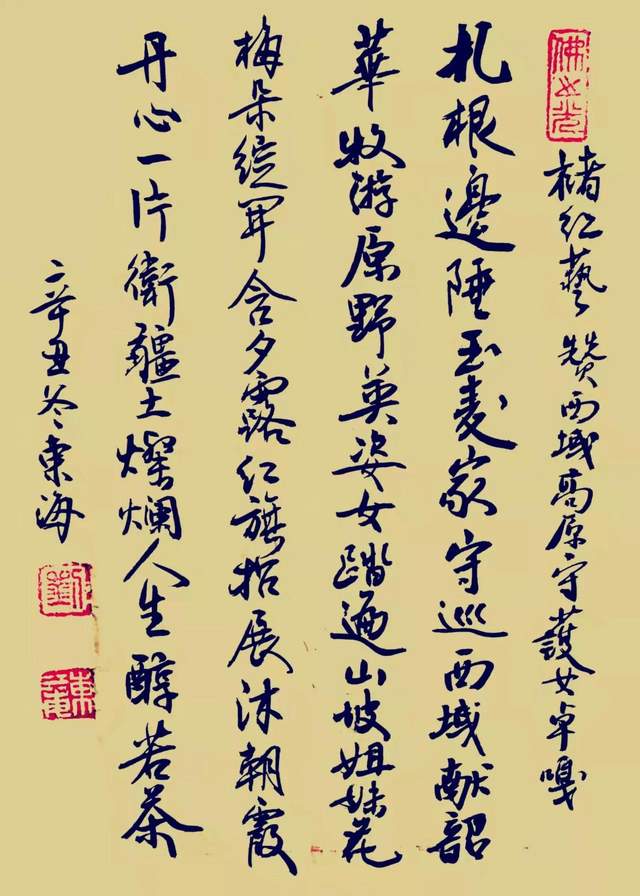 楮红藝 贊西域高原守護女卓嘎
札根邊陲玉麦家守巡西域献韶
華牧游原野英姿女踏遍山坡姐妹花
梅朵绽开含夕露红旗招展沐朝霞
丹心一片衛疆土燦爛人生醇若茶
辛丑冬東海